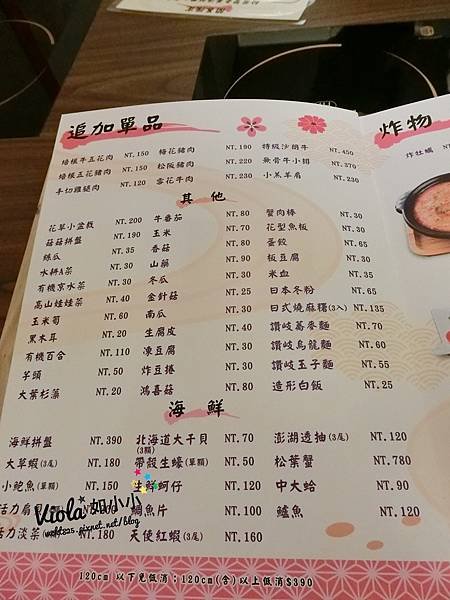 追加單品
培根牛五花肉 NT.150 梅花豬肉 NT.190 特級沙朗牛 NT.450
培根五花豬肉 NT.150 松阪豬肉 NT.230 無骨牛小排 NT.370
手切雞腿肉 NT.120 雪花牛肉 NT.230 小羔羊肩 NT.230
其他
花草小盆栽 NT.200 牛番茄 NT.80 蟹肉棒 NT.30
菇菇拼盤 NT.190 玉米 NT.70 花型魚板 NT.30
絲瓜 NT.35 香菇 NT.80 蛋餃 NT.65
水耕A菜 NT.30 山藥 NT.90 板豆腐 NT.30
有機京水菜 NT.30 冬瓜 NT.30 米血 NT.35
高山娃娃菜 NT.40 金針菇 NT.25 日本冬粉 NT.65
玉米筍 NT.60 南瓜 NT.30 日式燒麻糬(3入) NT.135
黑木耳 NT.20 生腐皮 NT.40 讚岐蕎麥麵 NT.70
有機百合 NT.110 凍豆腐 NT.30 讚岐烏龍麵 NT.60
芋頭 NT.50 炸豆捲 NT.30 讚岐玉子麵 NT.55
大葉杉藻 NT.20 鴻喜菇 NT.80 造形白飯 NT.25
海鮮
海鮮拼盤 NT.390 北海道大干貝(3顆) NT.70 澎湖透抽(3尾) NT.120
大草蝦(3尾) NT.180 帶殼生蠔(單顆) NT.50 松葉蟹 NT.780
小鮑魚(單顆) NT.150 生鮮蚵仔 NT.120 中大蛤 NT.90
活力扇貝 鯛魚片 NT.100 鱸魚 NT.120
活力淡菜(5顆) NT.180 天使紅蝦(3尾) NT.160
120cm 以下免低消；120cm(含)以上低消$390
炸物
炸牡蠣
Viola 如小小